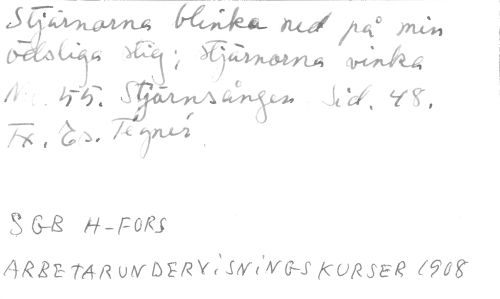 Stjärnorna blinka ned på min
ödsliga stig; stjärnorna vinka
No. 55. Stjärnsången Sid. 48.
Tx. Es. Tegnér
SGB H-FORS
ARBETARUNDERVISNINGSKURSER 1908